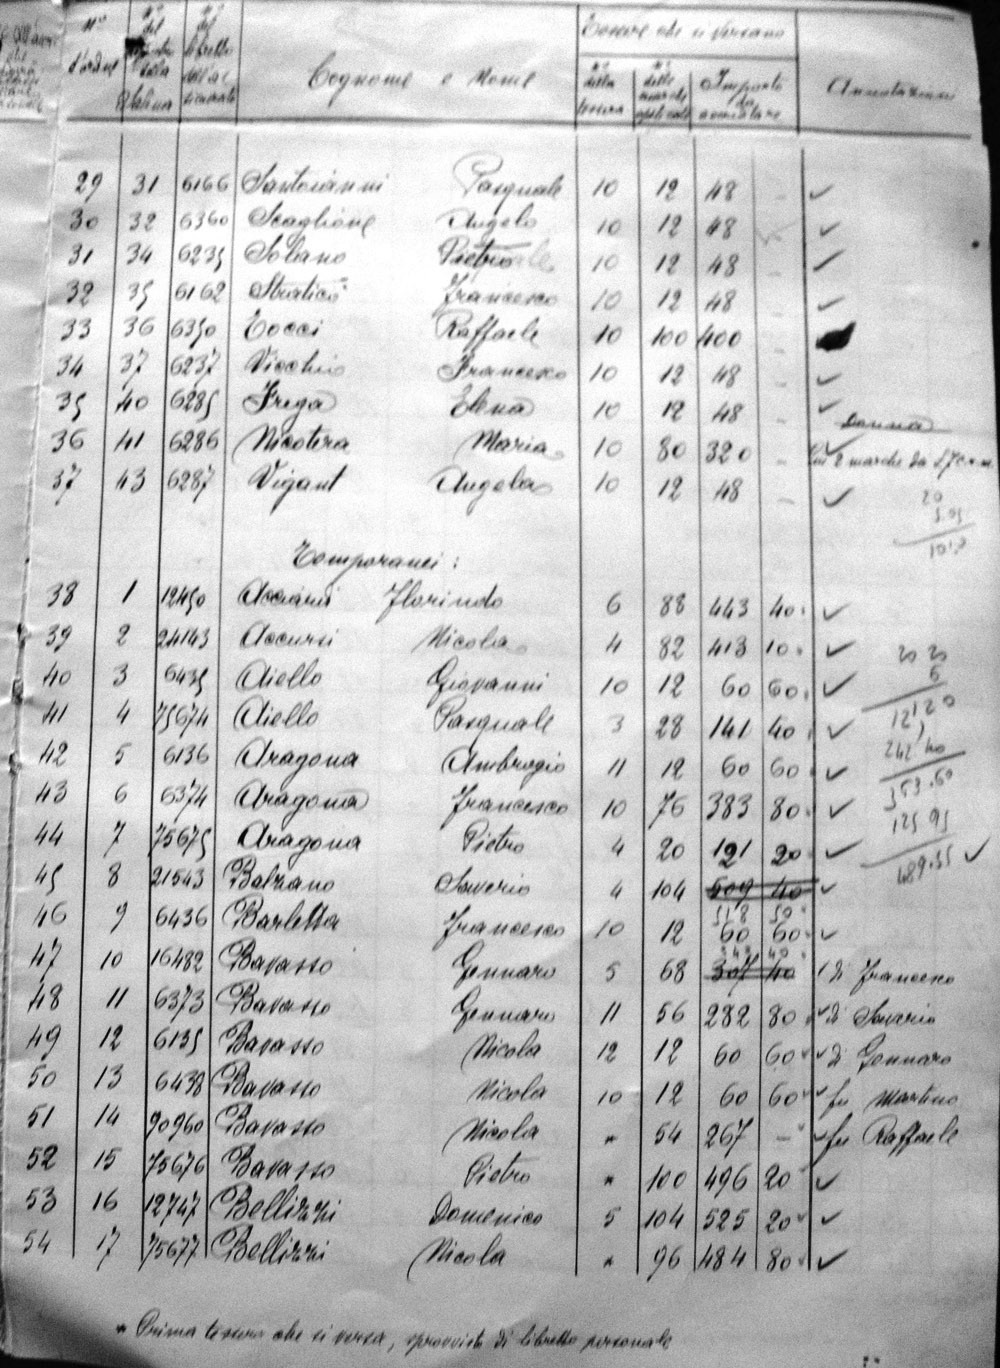 N° d'ordine | N° del registro della Salina | N° del libretto dell'assicurato | Cognome e Nome | Tessere che si versano | Annotazioni
N° della tessera | N° delle marche applicate | Importo da accreditare
29 31 6166 Santoianni Pasquale 10 12 48 - ✓
30 32 6360 Scaglione Angelo 10 12 48 ✓
31 34 6235 Solano Pietro 10 12 48 - ✓
32 35 6162 Straticò Francesco 10 12 48 - ✓
33 36 6350 Tocci Raffaele 10 100 400 -
34 37 6237 Vicchio Francesco 10 12 48 - ✓
35 40 6285 Frega Elena 10 12 48 - ✓ Donna
36 41 6286 Nicotera Maria 10 80 320 - ✓ 2 marche da
37 43 6287 Vigant Angela 10 12 48 - ✓
20
Temporanei:
38 1 12450 Acciardi Florindo 6 88 443 40 ✓
39 2 24143 Accursi Nicola 4 82 413 10 ✓
40 3 6435 Aiello Giovanni 10 12 60 60 ✓
41 4 75674 Aiello Pasquale 3 28 141 40 ✓
42 5 6136 Aragona Ambrogio 11 12 60 60 ✓
43 6 6374 Aragona Francesco 10 76 383 80 ✓
44 7 75675 Aragona Pietro 4 20 121 20 ✓
45 8 21543 Balzano Saverio 4 104 509 40 ✓
518 50
46 9 6436 Barletta Francesco 10 12 60 60 ✓
47 10 16482 Bavasso Gennaro 5 68 307 40 ✓ di Francesco
48 11 6373 Bavasso Gennaro 11 56 282 80 ✓ di Saverio
49 12 6135 Bavasso Nicola 12 12 60 60 ✓ di Gennaro
50 13 6438 Bavasso Nicola 10 12 60 60 ✓ fu Martino
51 14 90960 Bavasso Nicola * 54 267 - ✓ fu Raffaele
52 15 75676 Bavasso Pietro * 100 496 20 ✓
53 16 12747 Bellizzi Domenico 5 104 525 20 ✓
54 17 75677 Bellizzi Nicola * 96 484 80 ✓
* Prima tessera che si versa, sprovvista di libretto personale